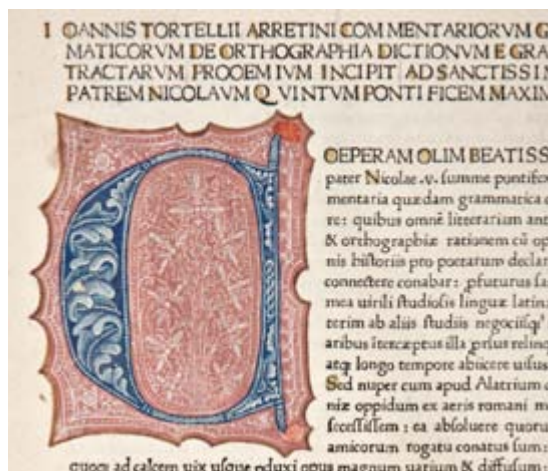 IOANNIS TORTELLII ARRETINI COMMENTARIORVM G
MATICORVM DE ORTHOGRAPHIA DICTIONVM E GRA
TRACTARVM PROOEMIVM INCIPIT AD SANCTISSIM
PATREM NICOLAVM QVINTVM PONTIFICEM MAXIM
OEPERAM OLIM BEATISS
pater Nicolae .v. summe pontifex
mentaria quædam grammatica
re: quibus omnē litterariam ant
& orthographiæ rationem cū op
nis historiis pro poetarum declar
connectere conabar: ꝓfuturus sa
mea uirili studiosis linguæ latinæ
terim ab aliis studiis negociisq;
aribus ītercæptus illa ꝓrsus relinq
atq; longo tempore abiicere uisus
Sed nuper cum apud Alatrium
niæ oppidum ex aeris romani
secessissem: ea absoluere quoru
amicorum rogatu conatus sum:
quoq; ad calcem uix usque ꝓduxi opus magnum uarium & diffusum